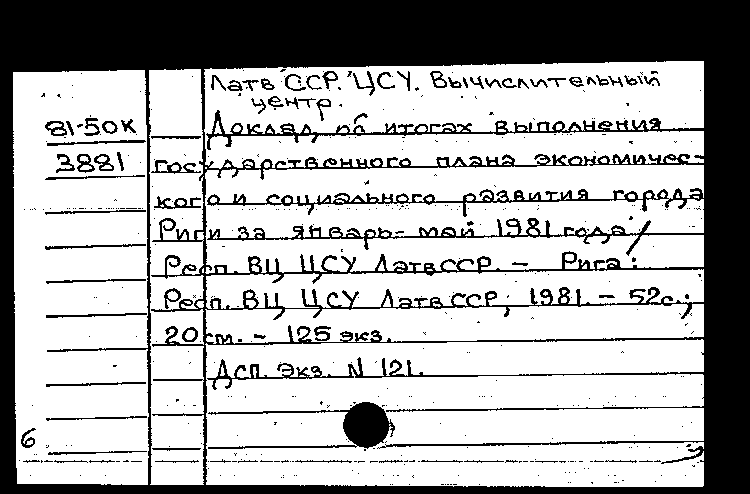 Латв ССР. ЦСУ. Вычислительный
центр.
81-50к
3881
Доклад об итогах выполнения
государственного плана экономичес-
кого и социального развития города
Риги за январь-май 1981 года /
Респ. ВЦ ЦСУ ЛатвССР. – Рига:
Респ. ВЦ ЦСУ ЛатвССР, 1981. – 52с.;
20 см. – 125 экз.
Дсп. Экз. N 121.
6